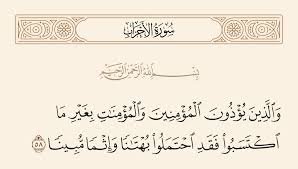 سُورَةُ الأَحْزَابِ
بِسْمِ اللَّهِ الرَّحْمَٰنِ الرَّحِيمِ
وَالَّذِينَ يُؤْذُونَ الْمُؤْمِنِينَ وَالْمُؤْمِنَاتِ بِغَيْرِ مَا
اكْتَسَبُوا فَقَدِ احْتَمَلُوا بُهْتَانًا وَإِثْمًا مُبِينًا ٥٨